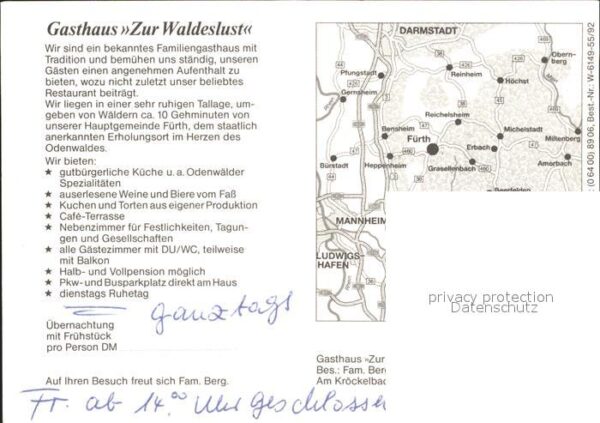 Gasthaus »Zur Waldeslust«
Wir sind ein bekanntes Familiengasthaus mit
Tradition und bemühen uns ständig, unseren
Gästen einen angenehmen Aufenthalt zu
bieten, wozu nicht zuletzt unser beliebtes
Restaurant beiträgt.
Wir liegen in einer sehr ruhigen Tallage, um-
geben von Wäldern ca. 10 Gehminuten von
unserer Hauptgemeinde Fürth, dem staatlich
anerkannten Erholungsort im Herzen des
Odenwaldes.
Wir bieten:
★ gutbürgerliche Küche u. a. Odenwälder
Spezialitäten
★ auserlesene Weine und Biere vom Faß
★ Kuchen und Torten aus eigener Produktion
★ Café-Terrasse
★ Nebenzimmer für Festlichkeiten, Tagun-
gen und Gesellschaften
★ alle Gästezimmer mit DU/WC, teilweise
mit Balkon
★ Halb- und Vollpension möglich
★ Pkw- und Busparkplatz direkt am Haus
★ dienstags Ruhetag
ganztags
Übernachtung
mit Frühstück
pro Person DM
Auf Ihren Besuch freut sich Fam. Berg.
Fr. ab 14.00 Uhr geschlossen
DARMSTADT
Obern-
berg
Pfungstadt
Reinheim
Höchst
Gernsheim
Reichelsheim
Bensheim
Michelstadt
Fürth
Miltenberg
Erbach
Bürstadt
Heppenheim
Grasellenbach
Amorbach
Beerfelden
MANNHEIM
LUDWIGS-
HAFEN
(0 64 00) 89 06, Best.-Nr.: W-6149-55/92
privacy protection
Datenschutz
Gasthaus »Zur
Bes.: Fam. Berg
Am Kröckelbac